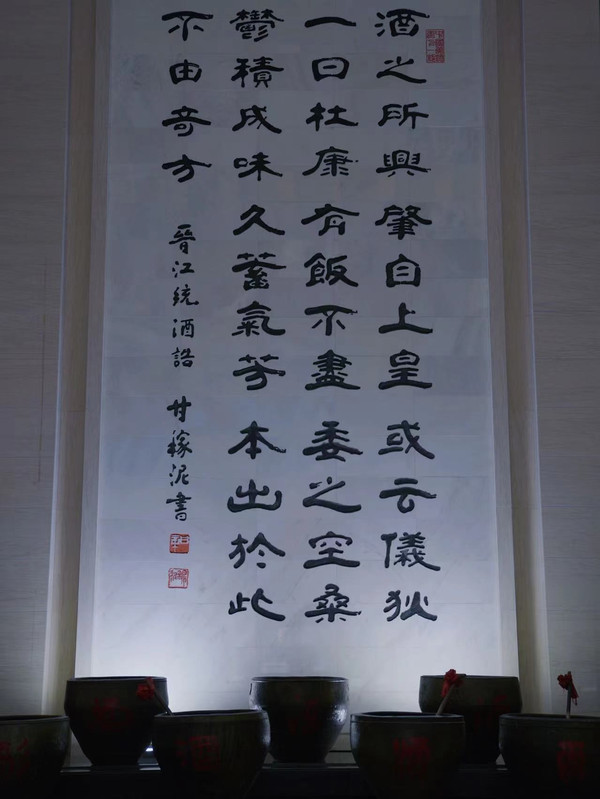 酒之所興肇自上皇或云儀狄
一曰杜康有飯不盡委之空桑
鬱積成味久蓄氣芳本出於此
不由奇方
晉江統酒誥 甘稼泥書